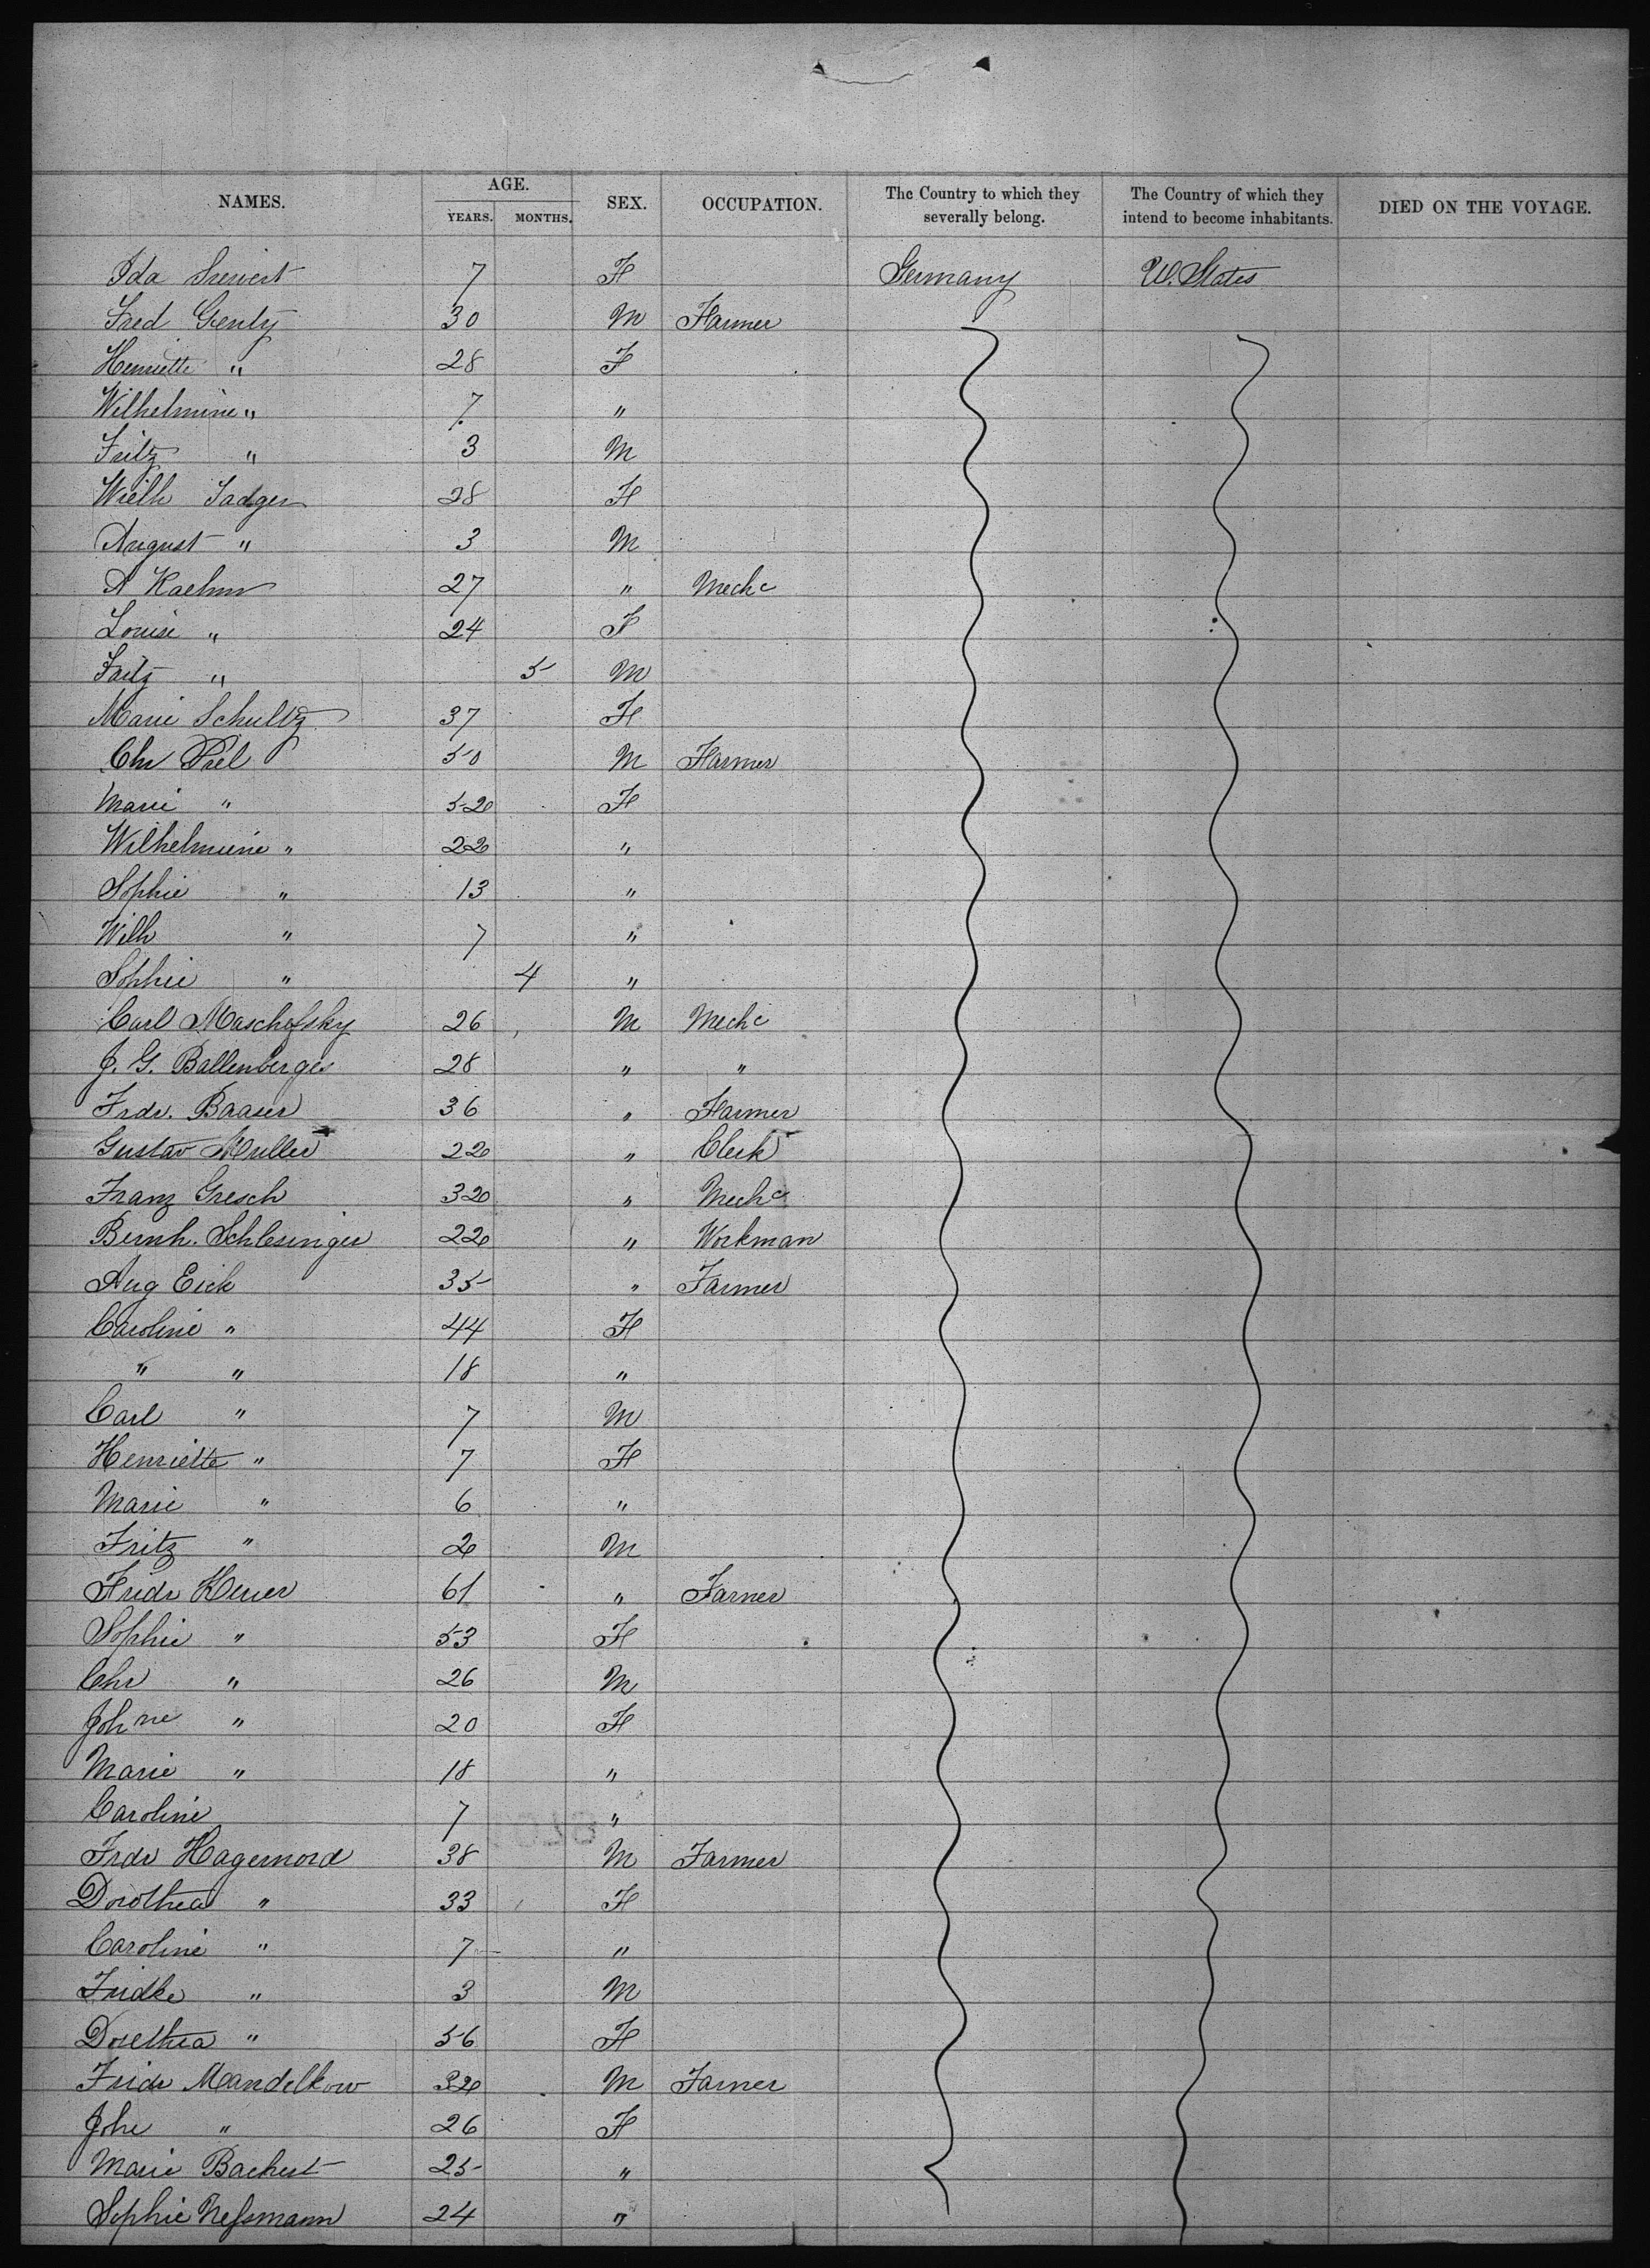 NAMES. AGE. YEARS. MONTHS. SEX. OCCUPATION. The Country to which they severally belong. The Country of which they intend to become inhabitants. DIED ON THE VOYAGE.
Ida Sievert 7 F Germany U. States
Fred Genty 30 M Farmer
Henriette " 28 F
Wilhelmine " 7 "
Fritz " 3 M
Wielh Jadger 28 F
August " 3 M
A Kaehm 27 " Mechc
Louise " 24 F
Fritz " 5 M
Marie Schultz 37 F
Chr Piel 50 M Farmer
Marie " 52 F
Wilhelmine " 22 "
Sophie " 13 "
Wilh " 7 "
Sophie " 4 "
Carl Maschofsky 26 M Mechc
J. G. Ballenberger 28 " "
Frdr. Baaser 36 " Farmer
Gustav Muller 22 " Clerk
Franz Gresch 32 " Mechc
Bernh. Schlesinger 22 " Workman
Aug Eick 35 " Farmer
Caroline " 44 F
" " 18 "
Carl " 7 M
Henriette " 7 F
Marie " 6 "
Fritz " 2 M
Fridr Heuer 61 " Farmer
Sophie " 53 F
Chr " 26 M
Johne " 20 F
Marie " 18 "
Caroline 7 "
Frdr Hagernord 38 M Farmer
Dorothea " 33 F
Caroline " 7 "
Fridke " 3 M
Dorethea " 56 F
Fridr Mandelkow 32 M Farmer
Johe " 26 F
Marie Bachert 25 "
Sophie Nessmann 24 "